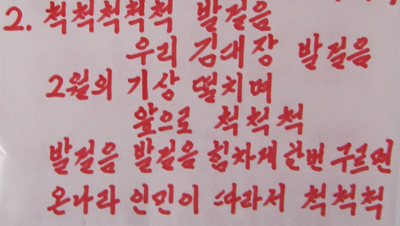 2. 척척척척척 발걸음
우리 김대장 발걸음
2월의 기상 떨치며
앞으로 척척척
발걸음 발걸음 힘차게 한번 구르면
온나라 인민이 따라서 척척척